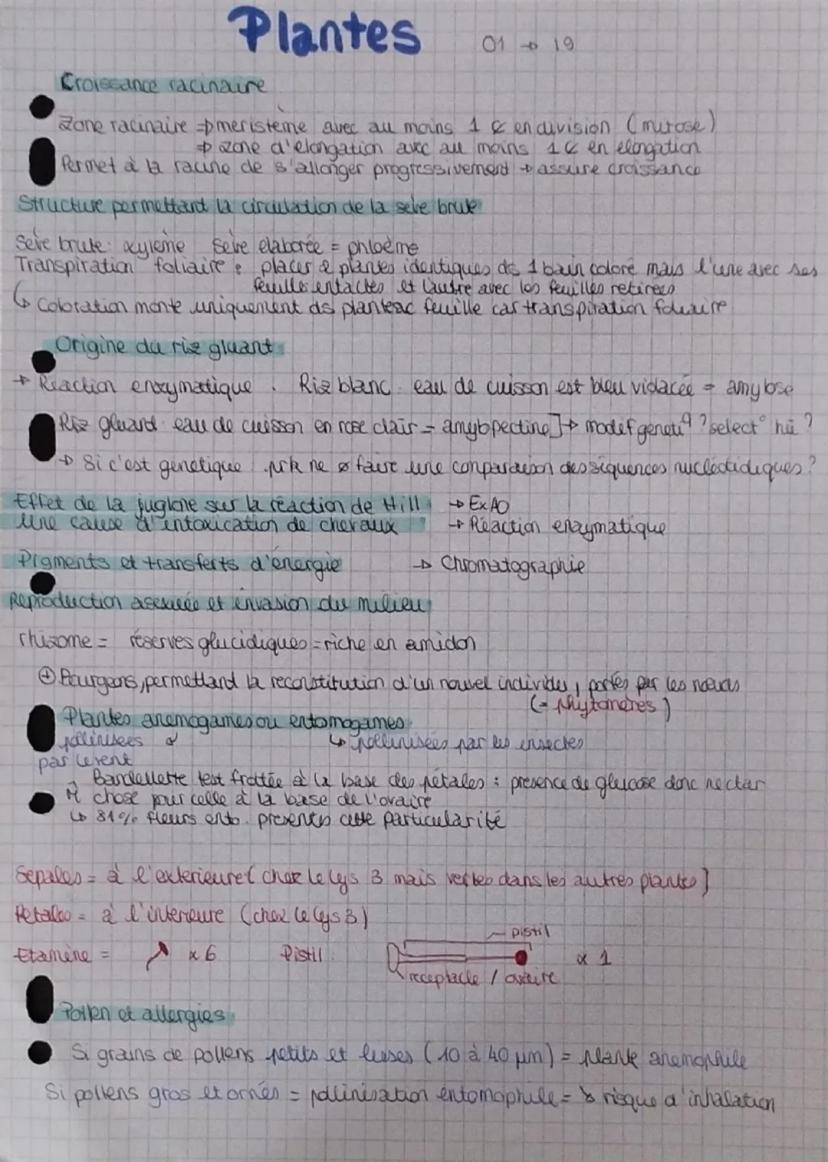 Plantes 01 → 19
Croissance racinaire
Zone racinaire ⇒ meristème avec au moins 1 ¢ en division (mitose)
⇒ zone d'elongation avec au moins 1 ¢ en elongation
Permet à la racine de s'allonger progressivement → assure croissance
Structure permettant la circulation de la seve brute
Seve brute: xyleme Seve elaborée = phloème
Transpiration foliaire : placer 2 plantes identiques ds 1 bain coloré mais l'une avec ses
feuilles intactes et l'autre avec les feuilles retirées
↳ Coloration monte uniquement ds plante ac feuille car transpiration foliaire
Origine du riz gluant
→ Reaction enzymatique. Riz blanc: eau de cuisson est bleu violacée = amylose
Riz gluant: eau de cuisson en rose clair = amylopectine] → modif genetiq ? select° hu ?
→ Si c'est genetique prk ne ø faire une comparaison des séquences nucléotidiques ?
Effet de la juglone sur la réaction de Hill → ExAO
Une cause d'intoxication de chevaux → Réaction enzymatique
Pigments et transferts d'énergie → Chromatographie
Reproduction asexuée et invasion du milieu
rhizome = réserves glucidiques = riche en amidon
⊕ Bourgeons, permettant la reconstitution d'un nouvel individu, portés par les noeuds
(= phytomères)
Plantes anemogames ou entomogames
pollinisées ↳ pollinisées par les insectes
par le vent
Bandelette test frottée à la base des pétales : presence de glucose donc nectar
M̂ chose pour celle à la base de l'ovaire
↳ 81% fleurs ento. presentes cette particularité
Sepales = à l'exterieure (chez le lys 3 mais vertes dans les autres plantes)
Petales = à l'interieure (chez le lys 3)
Etamine = x 6 Pistil pistil x 1
receptacle / ovaire
Pollen et allergies
Si grains de pollens petits et lisses (10 à 40 µm) = plante anemophile
Si pollens gros et ornés = pollinisation entomophile = ↘ risque d'inhalation